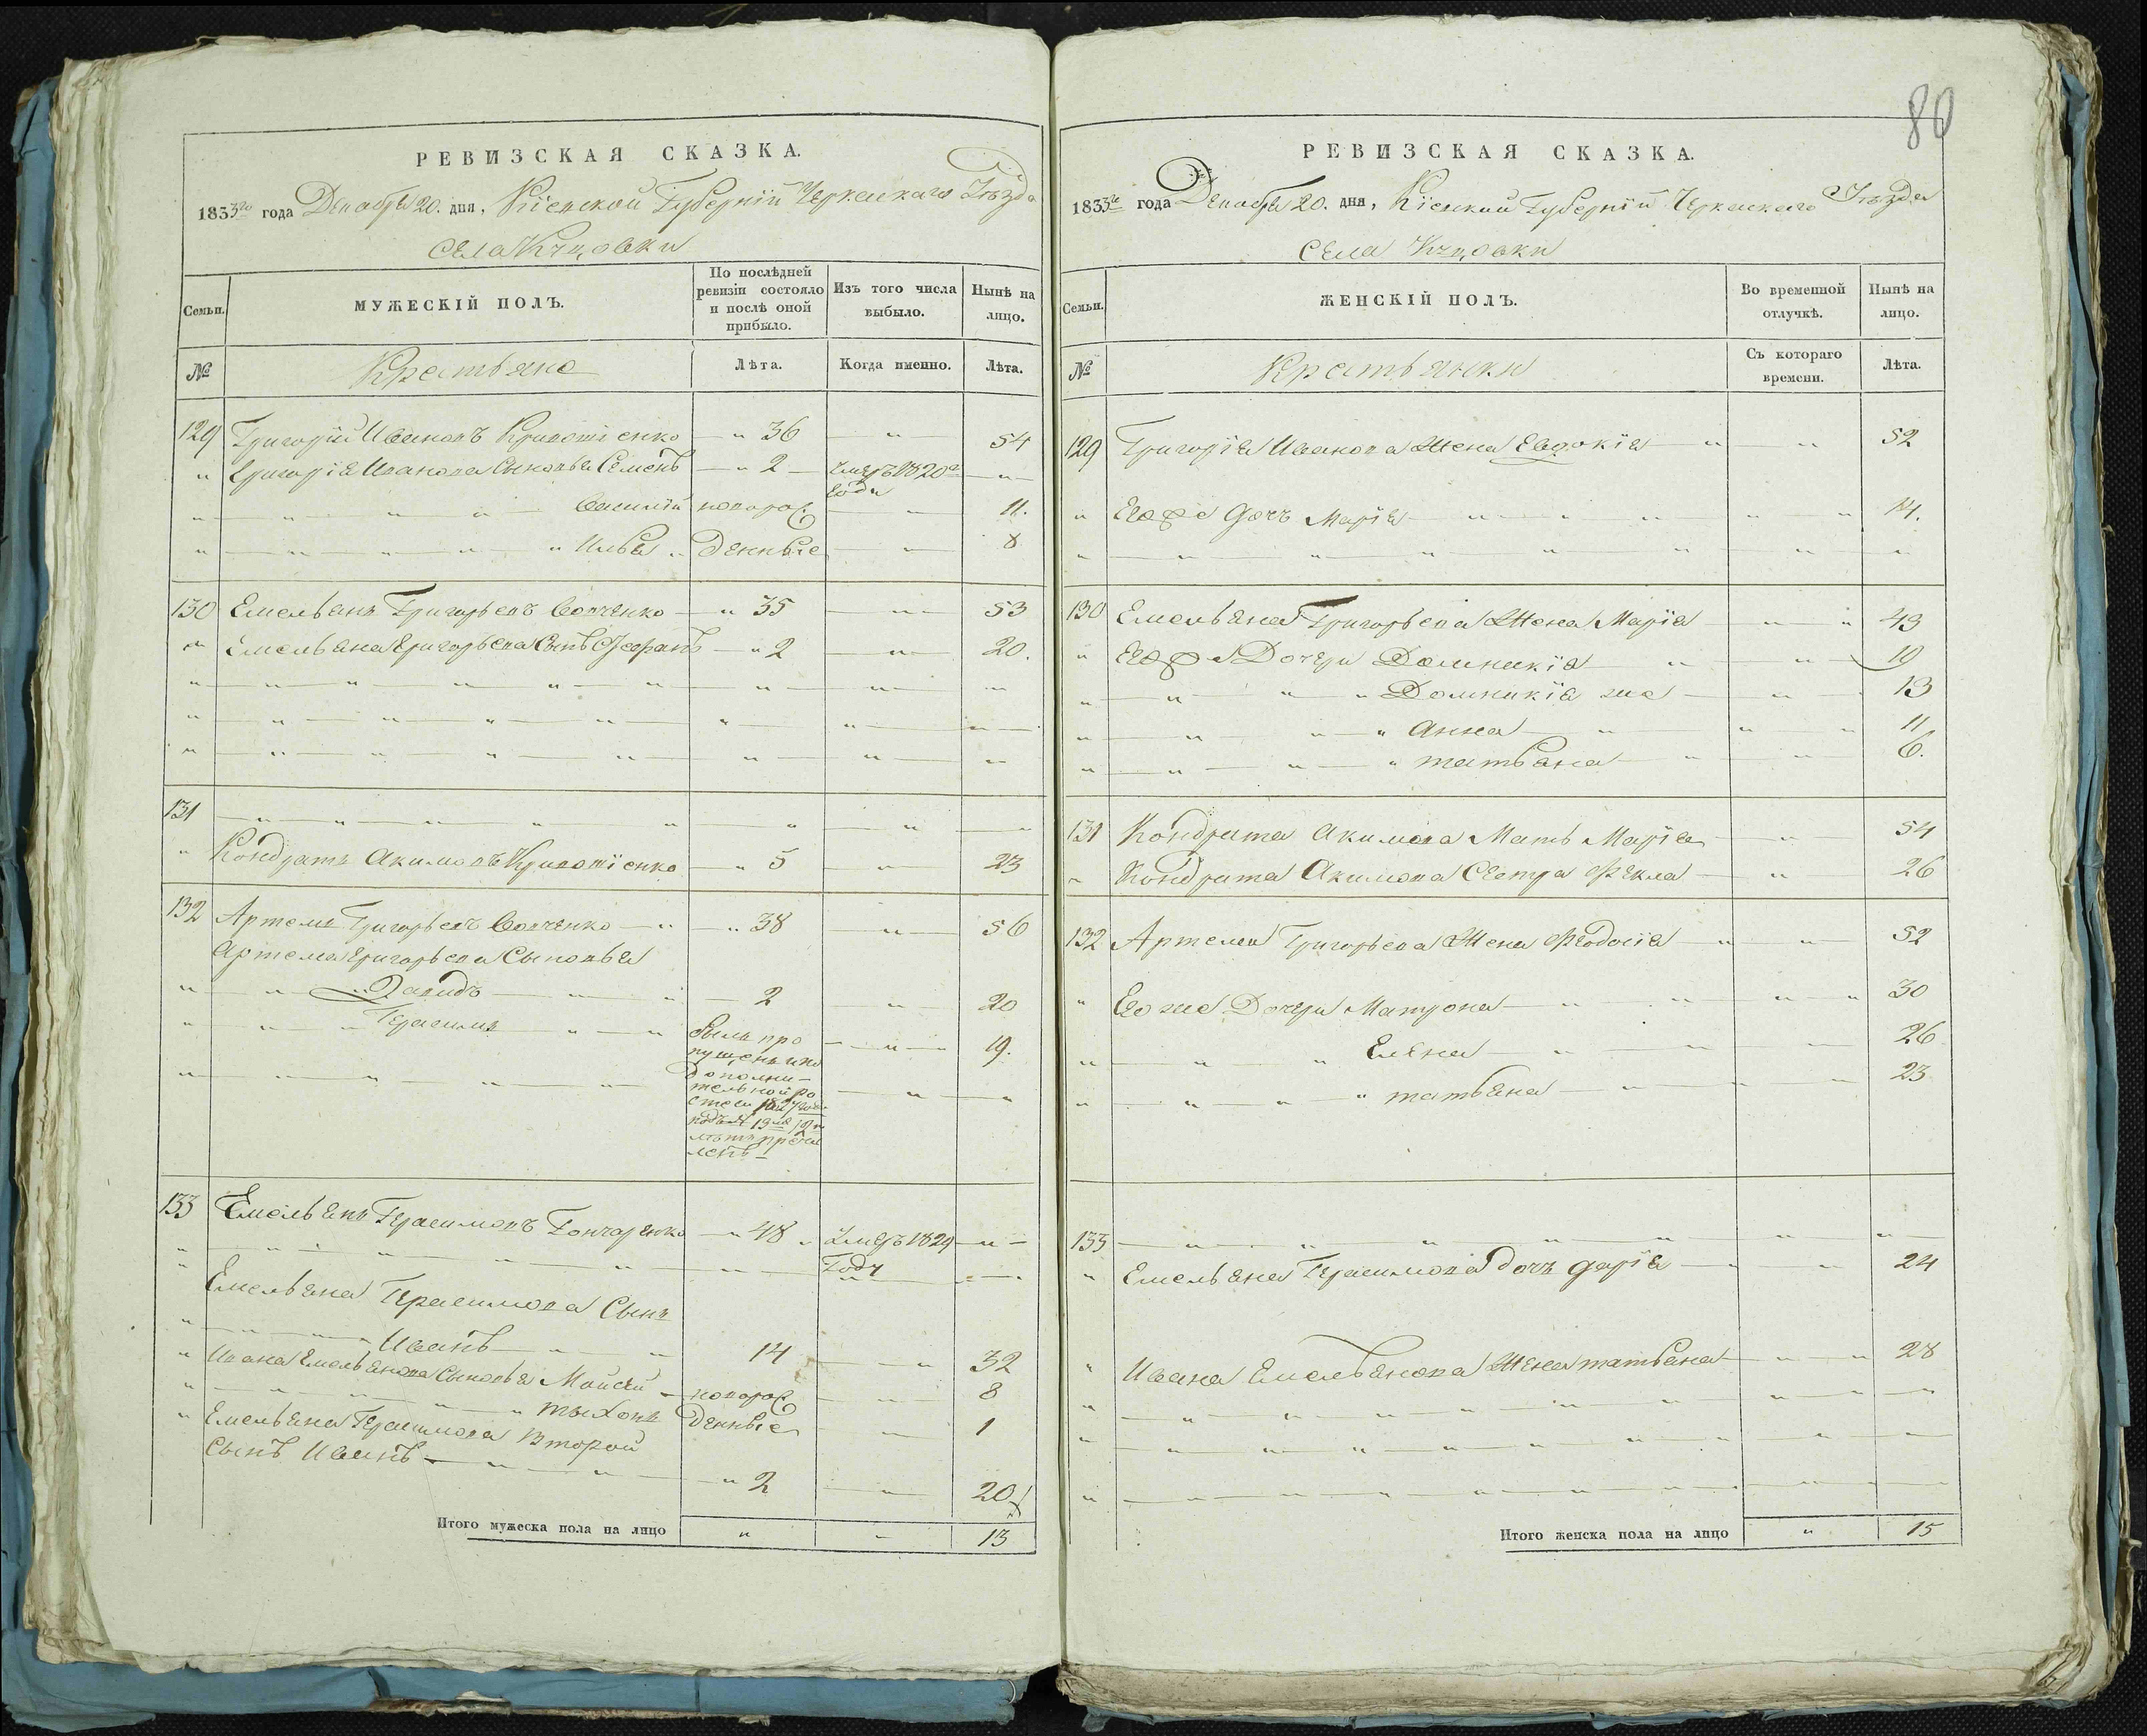 РЕВИЗСКАЯ СКАЗКА.
1833го года Декабря 20. дня, Кіевской Губерніи Черкаскаго Уѣзда
Села
Семьи.
МУЖЕСКІЙ ПОЛЪ.
По послѣдней ревизіи состояло и послѣ оной прибыло.
Изъ того числа выбыло.
Нынѣ на лицо.
№
Крестьяне
Лѣта.
Когда именно.
Лѣта.
129 Григорій Ивановъ " 36 " 54
" Григорія Иванова Сыновья Семенъ " 2 Умеръ 1820го года "
" " " " Василій новорож 11.
" " " " Илья " денные " 8
130 Емельянъ Григорьевъ Совченко " 35 " 53
" Емельяна Григорьева Сынъ " 2 " 20.
131 " " " " " " " "
" Кондратъ Акимовъ " 5 " 23
132 Артемъ Григорьевъ Совченко " " 38 " 56
Артема Григорьева Сыновья
" " " Давидъ " " 2 " 20
" " " Герасимъ " " былъ про
пущенъ и по
дополни-
тельной
1827
лѣтъ
" 19.
133 Емельянъ Герасимовъ Гончаренко " 48 " Умеръ 1829 Году "
Емельяна Герасимова Сынъ
" " " Иванъ " " 14 " 32
" Ивана Емельянова Сыновья Мойсей новорож 8
" " " " Тихонъ денные " 1
" Емельяна Герасимова Второй
Сынъ Иванъ " " " 2 " 20
Итого мужеска пола на лицо " " 13
80
РЕВИЗСКАЯ СКАЗКА.
1833го года Декабря 20. дня, Кіевской Губерніи Черкаскаго Уѣзда
Села
Семьи.
ЖЕНСКІЙ ПОЛЪ.
Во временной отлучкѣ.
Нынѣ на лицо.
№
Крестьянки
Съ котораго времени.
Лѣта.
129 Григорія Иванова Жена Евдокія " " 52
" Егоже дочь Марія " " 14.
130 Емельяна Григорьева Жена Марія " " 43
" Егоже Дочери Домникія " " 19
" " " " Домникія же " 13
" " " " Анна " " 11
" " " " татьяна " " 6.
131 Кондрата Акимова Мать Марія " 54
" Кондрата Акимова Сестра Фекла " 26
132 Артема Григорьева Жена Феодосія " " 52
" Егоже Дочери Матрона " " 30
" " " Елена " " 26
" " " " татьяна " " 23
133 " " " " " " "
" Емельяна Герасимова дочь дарія " " 24
" Ивана Емельянова Жена татьяна " " 28
Итого женска пола на лицо " 15